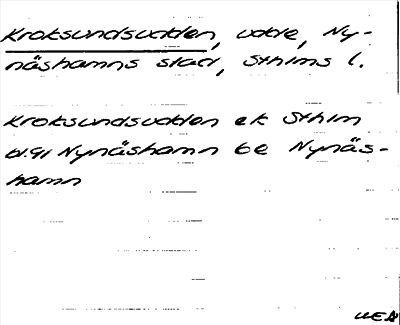 Kroksundsudden, udde, Ny-
näshamns stad, Sthlms l.
Kroksundsudden ek Sthlm
bl. 91 Nynäshamn be Nynäs-
hamn